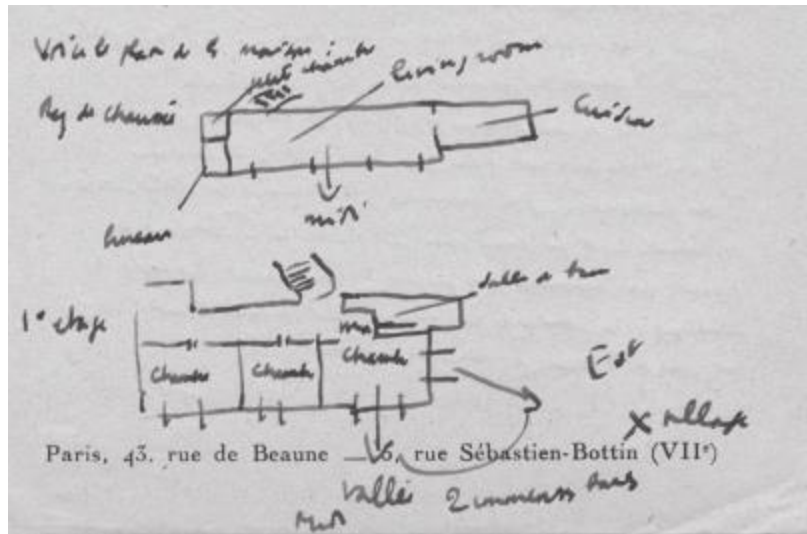 Voici le plan de la maison :
petite chambre
living room
Rez de chaussée
Cuisine
midi
bureau
salle de bain
1° étage
chambre
chambre
chambre
Est
X village
Paris, 43, rue de Beaune — 5, rue Sébastien-Bottin (VIIᵉ)
Vallée 2 immenses
Midi